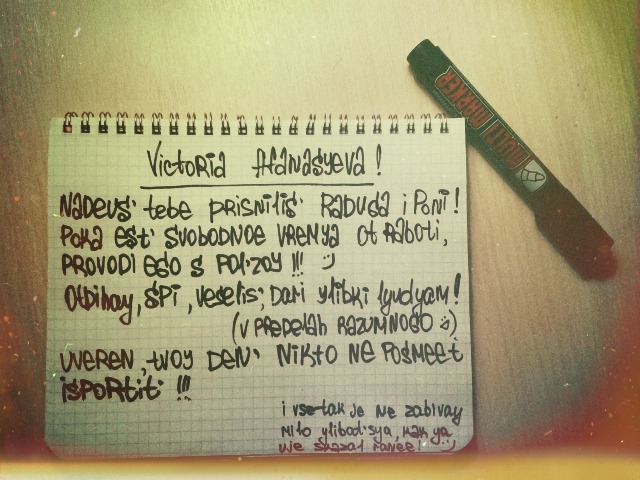 Victoria Afanasyeva!
NADEUS' tebe prisnilis' RADUGA i PONI!
POKA est' svobodnoe vremya ot raboti,
PROVODI EGO S POL'ZOY !!! :)
Otdihay, SPI, veselis', DARI ylibki lyudyam!
(v predelah RAZUMNOGO :))
UVEREN, tvoy DEN' NIKTO NE POSMEET
ISPORTIT' !!!
i vse-tak je Ne zabivay
Milo ylibat'sya, kak ya
uje skazal ranee! :)
MULTI MARKER